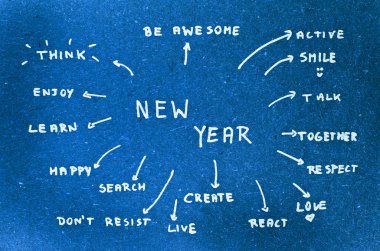 BE AWESOME
ACTIVE
THINK
SMILE
ENJOY
TALK
NEW
LEARN
YEAR
TOGETHER
HAPPY
RESPECT
SEARCH
CREATE
LOVE
DON'T RESIST
LIVE
REACT